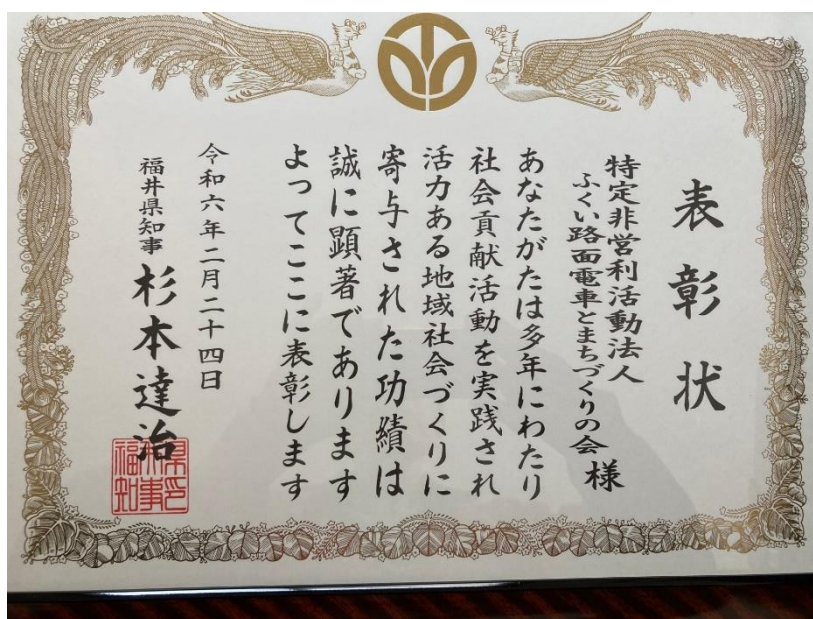 表彰状
特定非営利活動法人
ふくい路面電車とまちづくりの会 様
あなたがたは多年にわたり
社会貢献活動を実践され
活力ある地域社会づくりに
寄与された功績は
誠に顕著であります
よってここに表彰します
令和六年二月二十四日
福井県知事 杉本達治